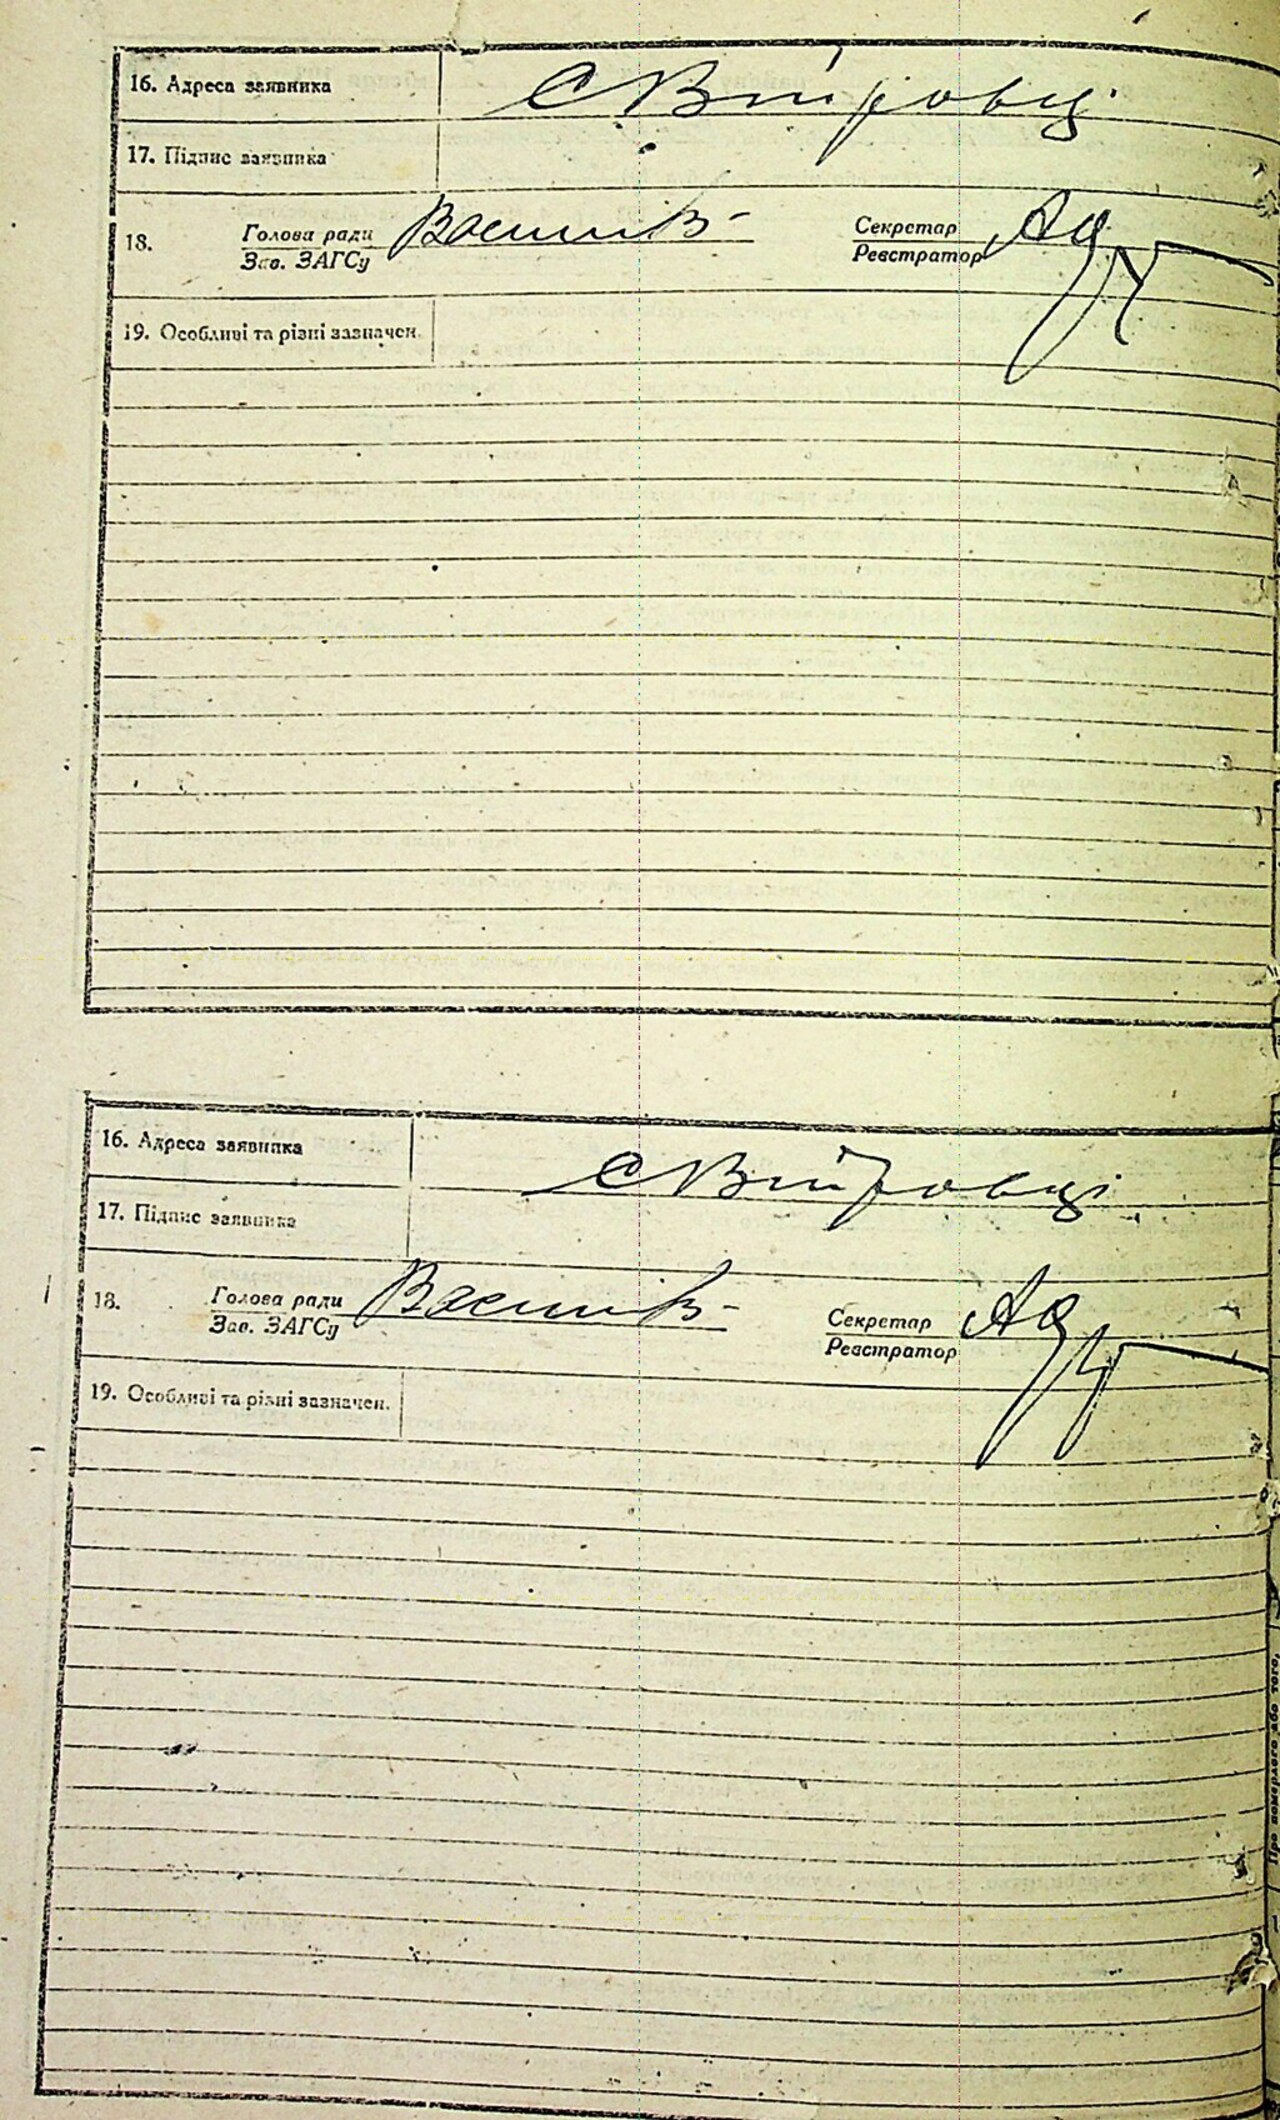 16. Адреса заявника С Вітровці
17. Підпис заявника
18. Голова ради Васил В- Секретар
Зав. ЗАГСу Реєстратор
19. Особливі та різні зазначен.
16. Адреса заявника С Вітровці
17. Підпис заявника
18. Голова ради Васил В- Секретар
Зав. ЗАГСу Реєстратор
19. Особливі та різні зазначен.
Про померлого або того,